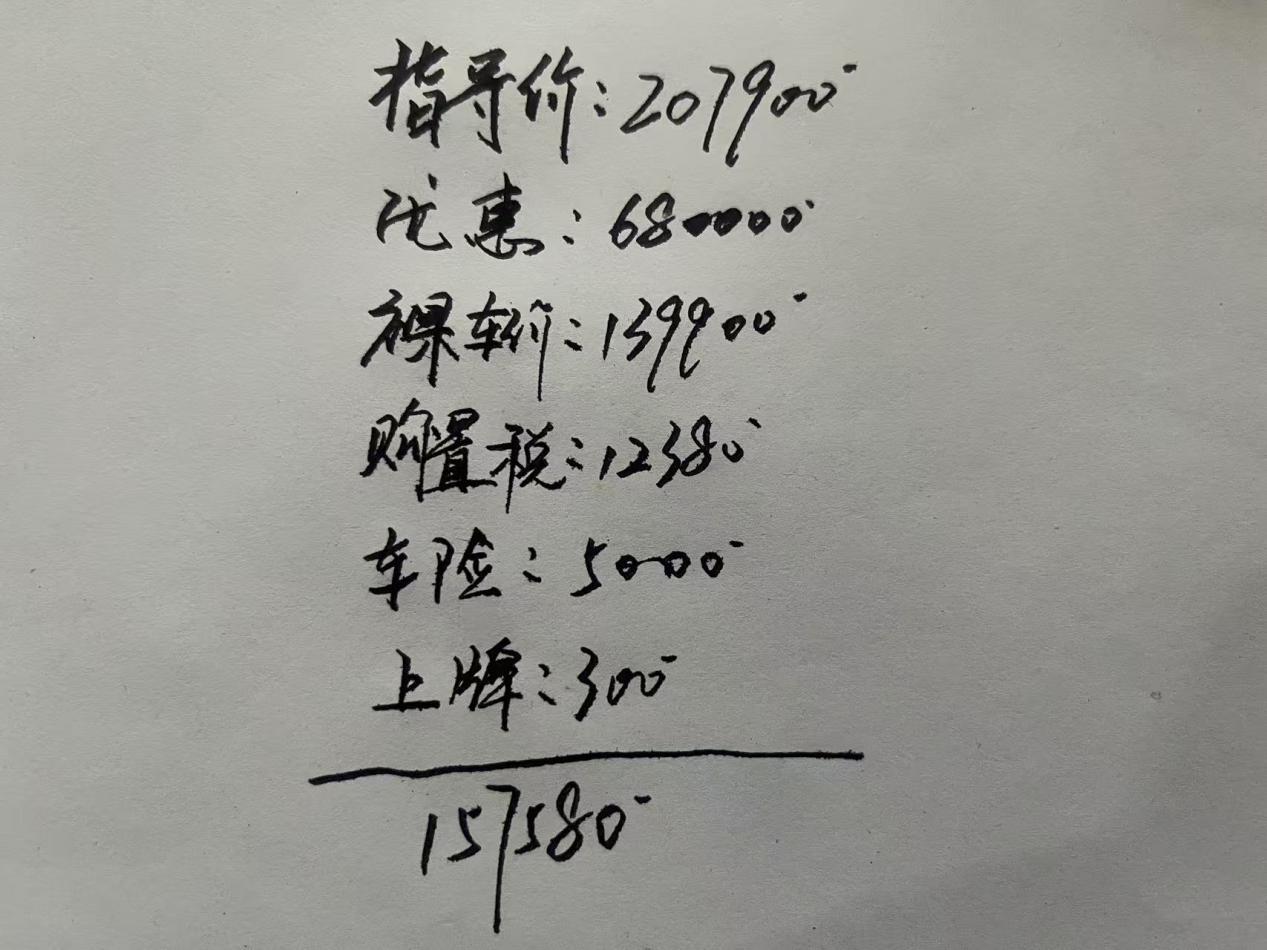 指导价：207900
优惠：680000
裸车价：139900
购置税：12380
车险：5000
上牌：300
157580